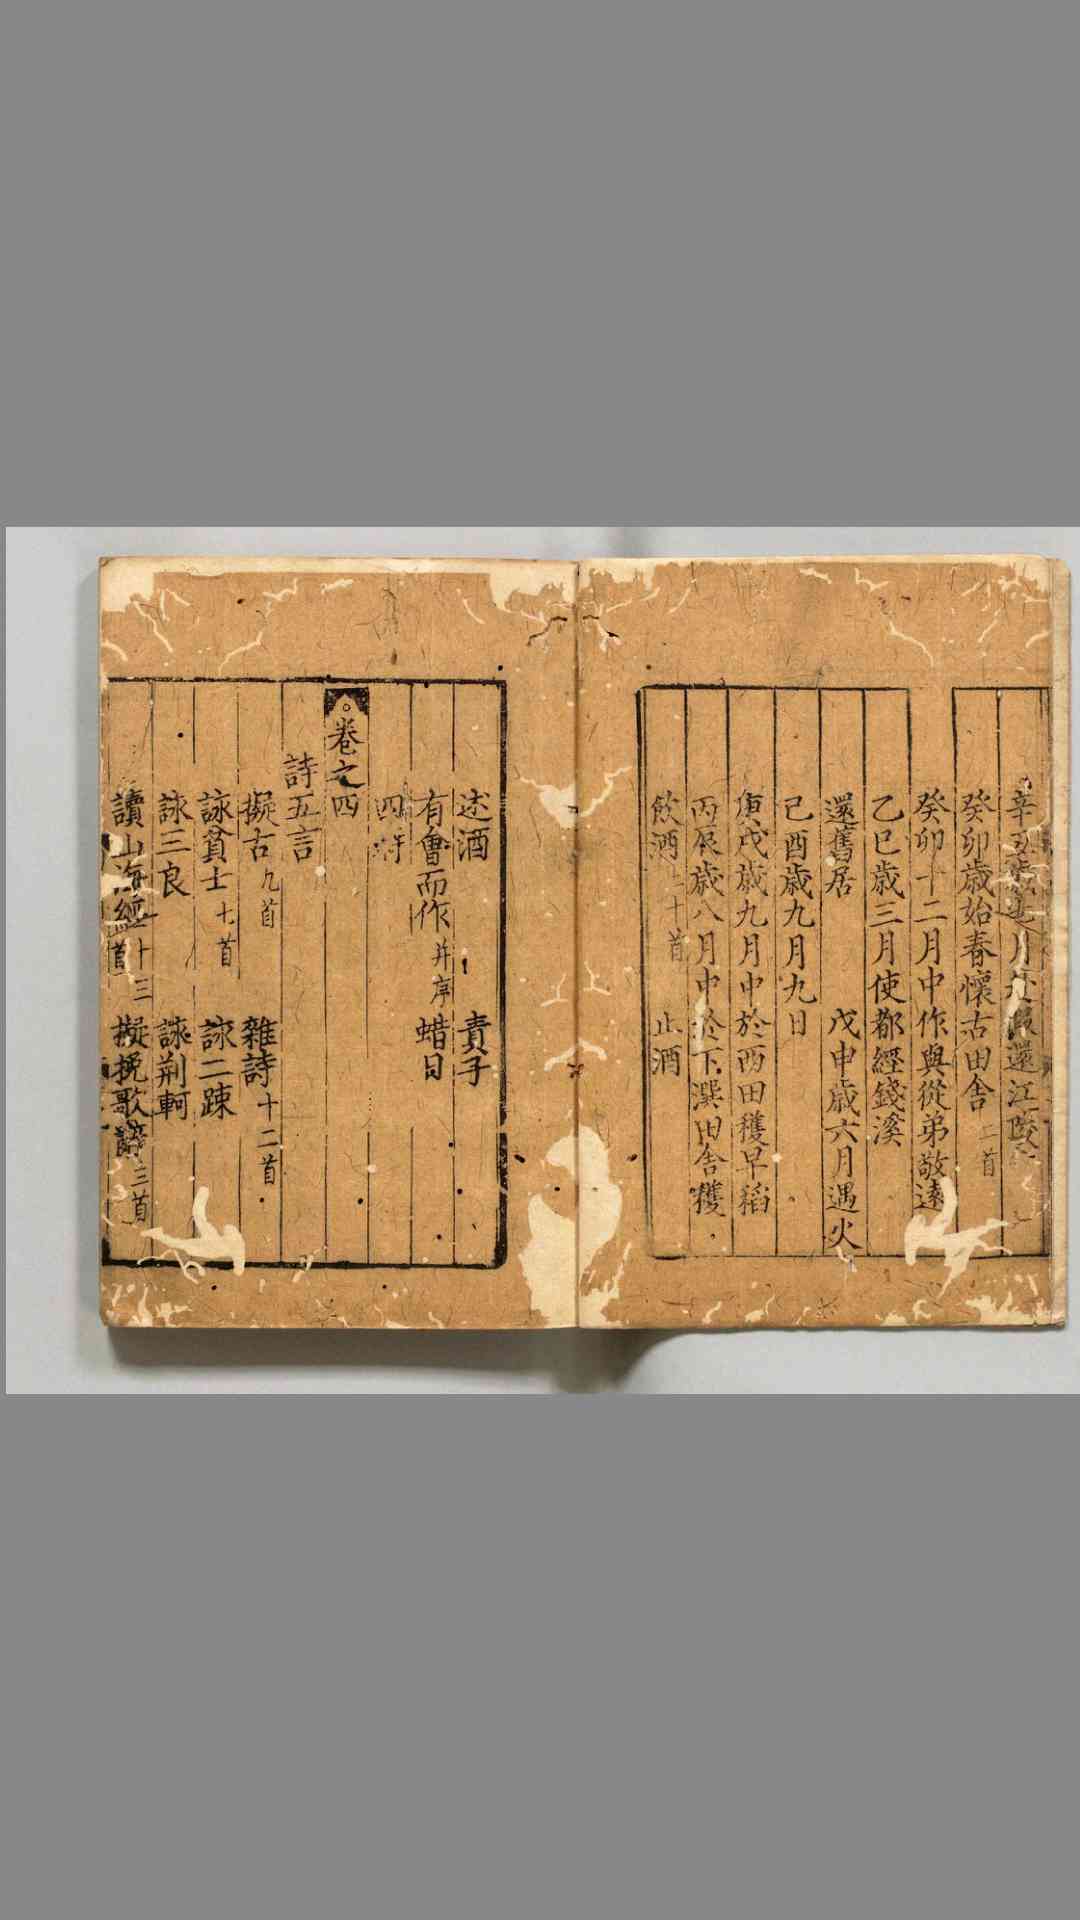 辛丑歲七月赴假還江陵
癸卯歲始春懷古田舍二首
癸卯十二月中作與從弟敬遠
乙巳歲三月使都經錢溪
還舊居 戊申歲六月遇火
己酉歲九月九日
庚戌歲九月中於西田穫早稻
丙辰歲八月中於下潠田舍穫
飲酒二十首 止酒
述酒 責子
有會而作并序 蜡日
四時
卷之四
詩五言
擬古九首 雜詩十二首
詠貧士七首 詠二踈
詠三良 詠荆軻
讀山海經十三首 擬挽歌詩三首